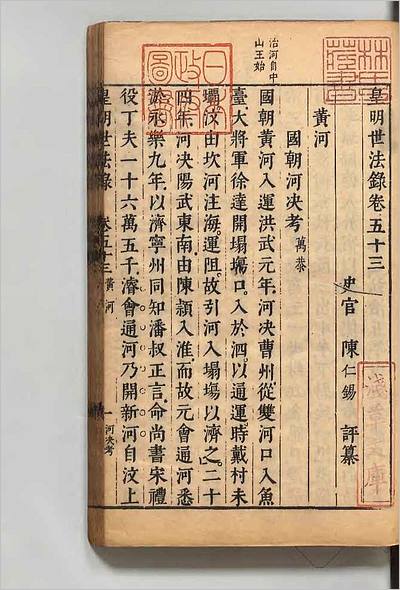 皇明世法錄卷五十三
史官 陳仁錫 評纂
黃河
國朝河決考 萬恭
國朝黃河入運洪武元年河決曹州從雙河口入魚
臺大將軍徐達開塌塲口入於泗以通運時戴村未
壩汶由坎河注海運阻故引河入塌塲以濟之二十
四年河決陽武東南由陳潁入淮而故元會通河悉
淤永樂九年以濟寧州同知潘叔正言命尚書宋禮
役丁夫一十六萬五千濬會通河乃開新河自汶上
皇明世法錄 卷五十三 黃河 一 河決考
治河自中
山王始
林氏
藏書
日本
政府
圖書
淺草文庫